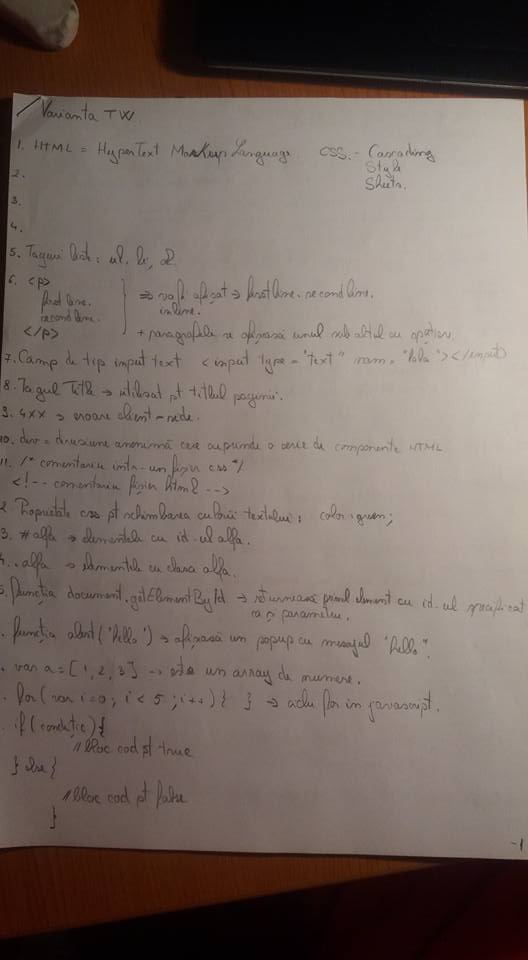 Varianta TW
1. HTML = HyperText Markup Language. CSS. - Cascading
Style
Sheets.
2.
3.
4.
5. Taguri liste: ul, li, ol
6. <p>
first line. } => va fi afișat => first line. second line.
second line. inline.
</p> + paragrafele se afișează unul sub altul cu spațiu.
7. Camp de tip input text <input type = "text" nam = "lala"></input>
8. Tagul Title → utilizat pt titlul paginii.
9. 4XX → eroare client-side.
10. div = diviziune anonimă care cuprinde o serie de componente HTML
11. /* comentariu intr-un fișier css */
<!-- comentariu fișier html -->
2. Proprietate css pt schimbarea culorii textului: color: green;
3. #alfa → elementele cu id-ul alfa.
4. .alfa → elementele cu clasa alfa.
5. Funcția document.getElementById → returnează primul element cu id-ul specificat
ca și parametru.
. Funcția alert('hello') → afișează un popup cu mesajul "hello".
. var a = [1, 2, 3] → este un array de numere.
. for (var i=0; i < 5; i++) { } → for in javascript.
. if (condiție) {
// bloc cod pt true
} else {
// bloc cod pt false
}
-1